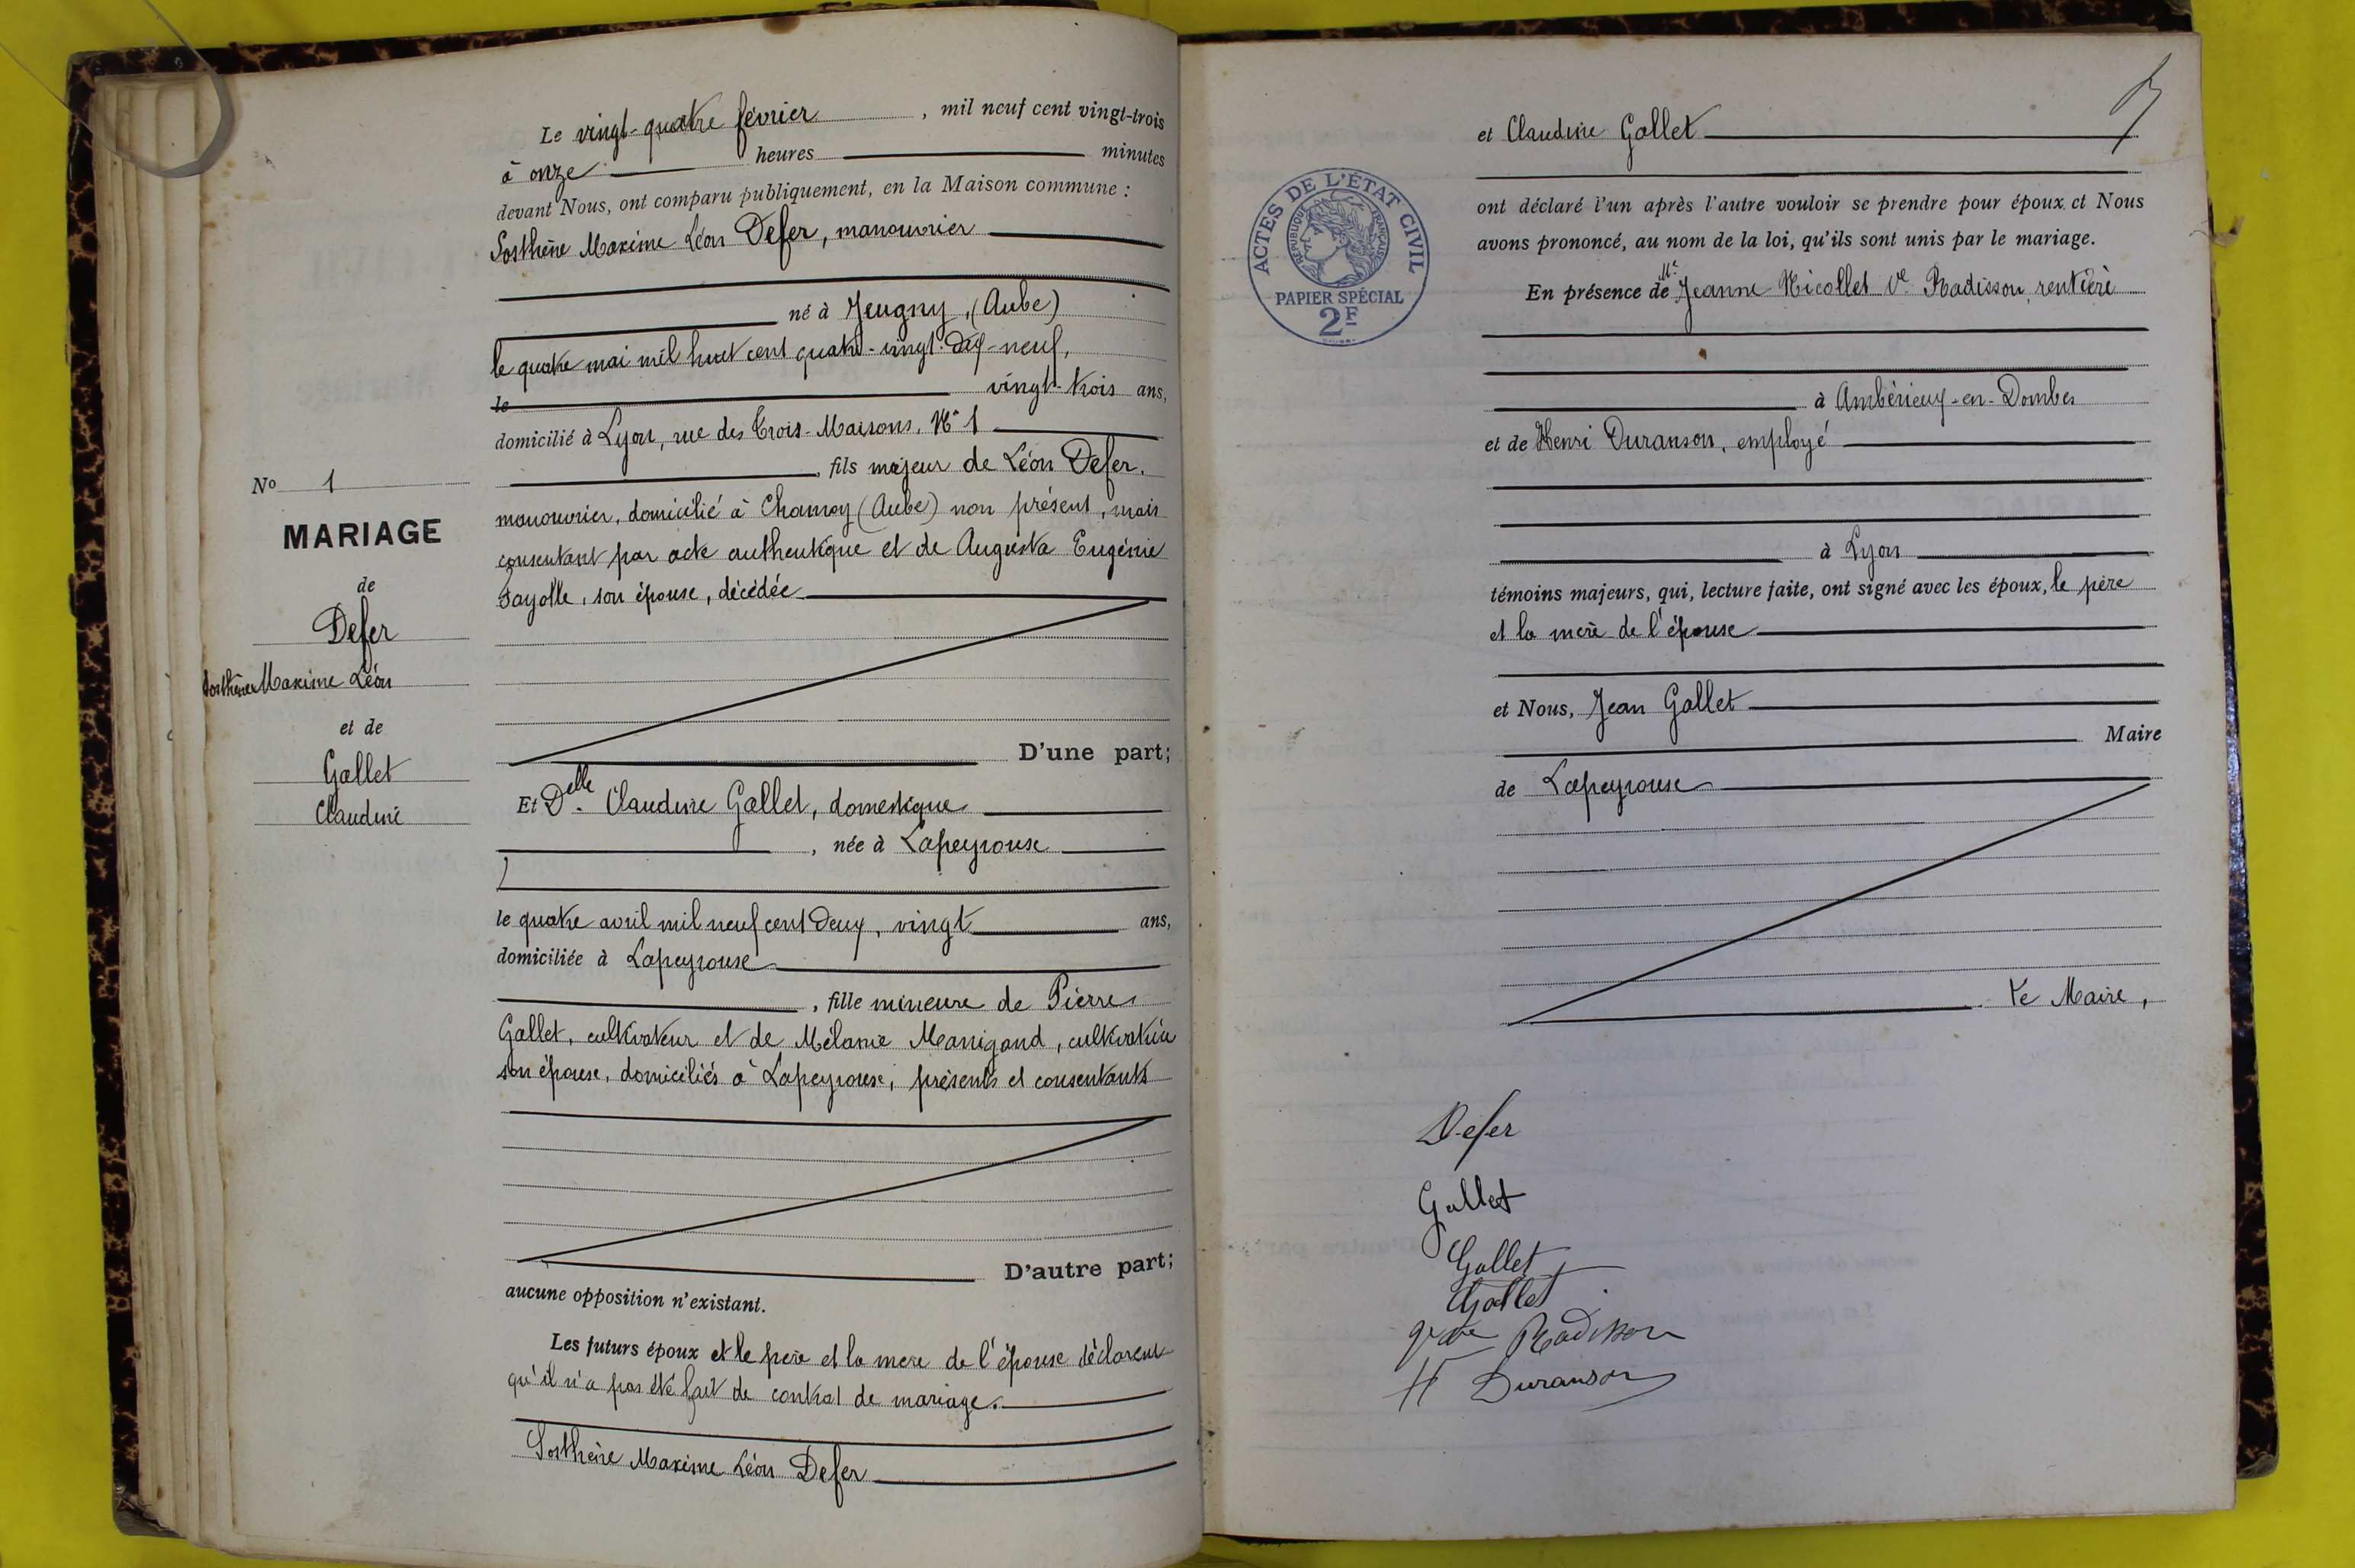 Le vingt-quatre février, mil neuf cent vingt-trois
à onze heures minutes
devant Nous, ont comparu publiquement, en la Maison commune :
Sosthène Maxime Léon Defer, manouvrier
né à Jeugny, (Aube)
le quatre mai mil huit cent quatre-vingt-dix-neuf,
le vingt-trois ans,
domicilié à Lyon, rue des Trois-Maisons, N° 1
, fils majeur de Léon Defer,
manouvrier, domicilié à Chamoy (Aube) non présent, mais
consentant par acte authentique et de Augusta Eugénie
Fayolle, son épouse, décédée
D'une part;
Et Delle Claudine Gallet, domestique
, née à Lapeyrouse
le quatre avril mil neuf cent deux, vingt ans,
domiciliée à Lapeyrouse
, fille mineure de Pierre
Gallet, cultivateur et de Mélanie Manigand, cultivatrice
son épouse, domiciliés à Lapeyrouse, présents et consentants
D'autre part;
aucune opposition n'existant.
Les futurs époux et le père et la mère de l'épouse déclarent
qu'il n'a pas été fait de contrat de mariage.
Sosthène Maxime Léon Defer
No 1
MARIAGE
de
Defer
Sosthène Maxime Léon
et de
Gallet
Claudine
et Claudine Gallet
ont déclaré l'un après l'autre vouloir se prendre pour époux et Nous
avons prononcé, au nom de la loi, qu'ils sont unis par le mariage.
En présence de Me Jeanne Nicollet Ve Radisson, rentière
à Ambérieux-en-Dombes
et de Henri Duranson, employé
à Lyon
témoins majeurs, qui, lecture faite, ont signé avec les époux, le père
et la mère de l'épouse
et Nous, Jean Gallet
Maire
de Lapeyrouse
Le Maire,
ACTES DE L'ÉTAT CIVIL
RÉPUBLIQUE FRANÇAISE
PAPIER SPÉCIAL
2F
Defer
Gallet
Gallet
Gallet
Radisson
H Duranson